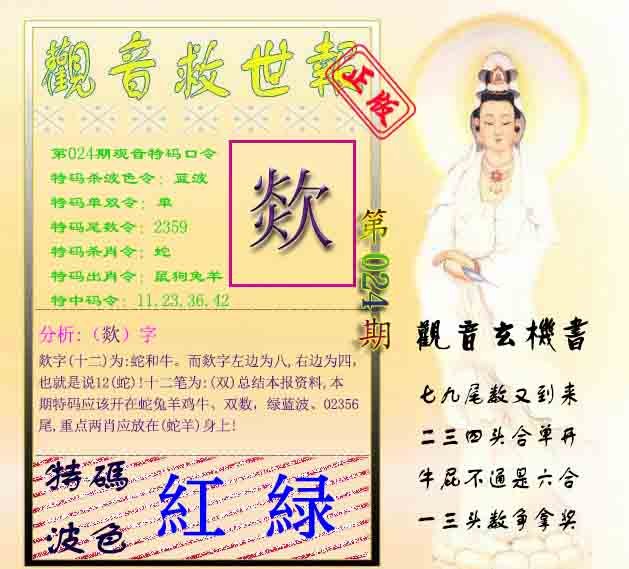 觀音救世報
正版
第024期观音特码口令
特码杀波色令: 蓝波
特码单双令: 单
特码尾数令: 2359
特码杀肖令: 蛇
特码出肖令: 鼠狗兔羊
特中码令: 11.23.36.42
欻
第024期
分析:（欻）字
欻字(十二)为:蛇和牛。而欻字左边为八,右边为四,
也就是说12(蛇)!十二笔为:(双)总结本报资料,本
期特码应该开在蛇兔羊鸡牛、双数，绿蓝波、02356
尾,重点两肖应放在(蛇羊)身上!
特碼
波色
紅緑
觀音玄機書
七九尾数又到来
二三四头合单开
牛屁不通是六合
一三头数争拿奖